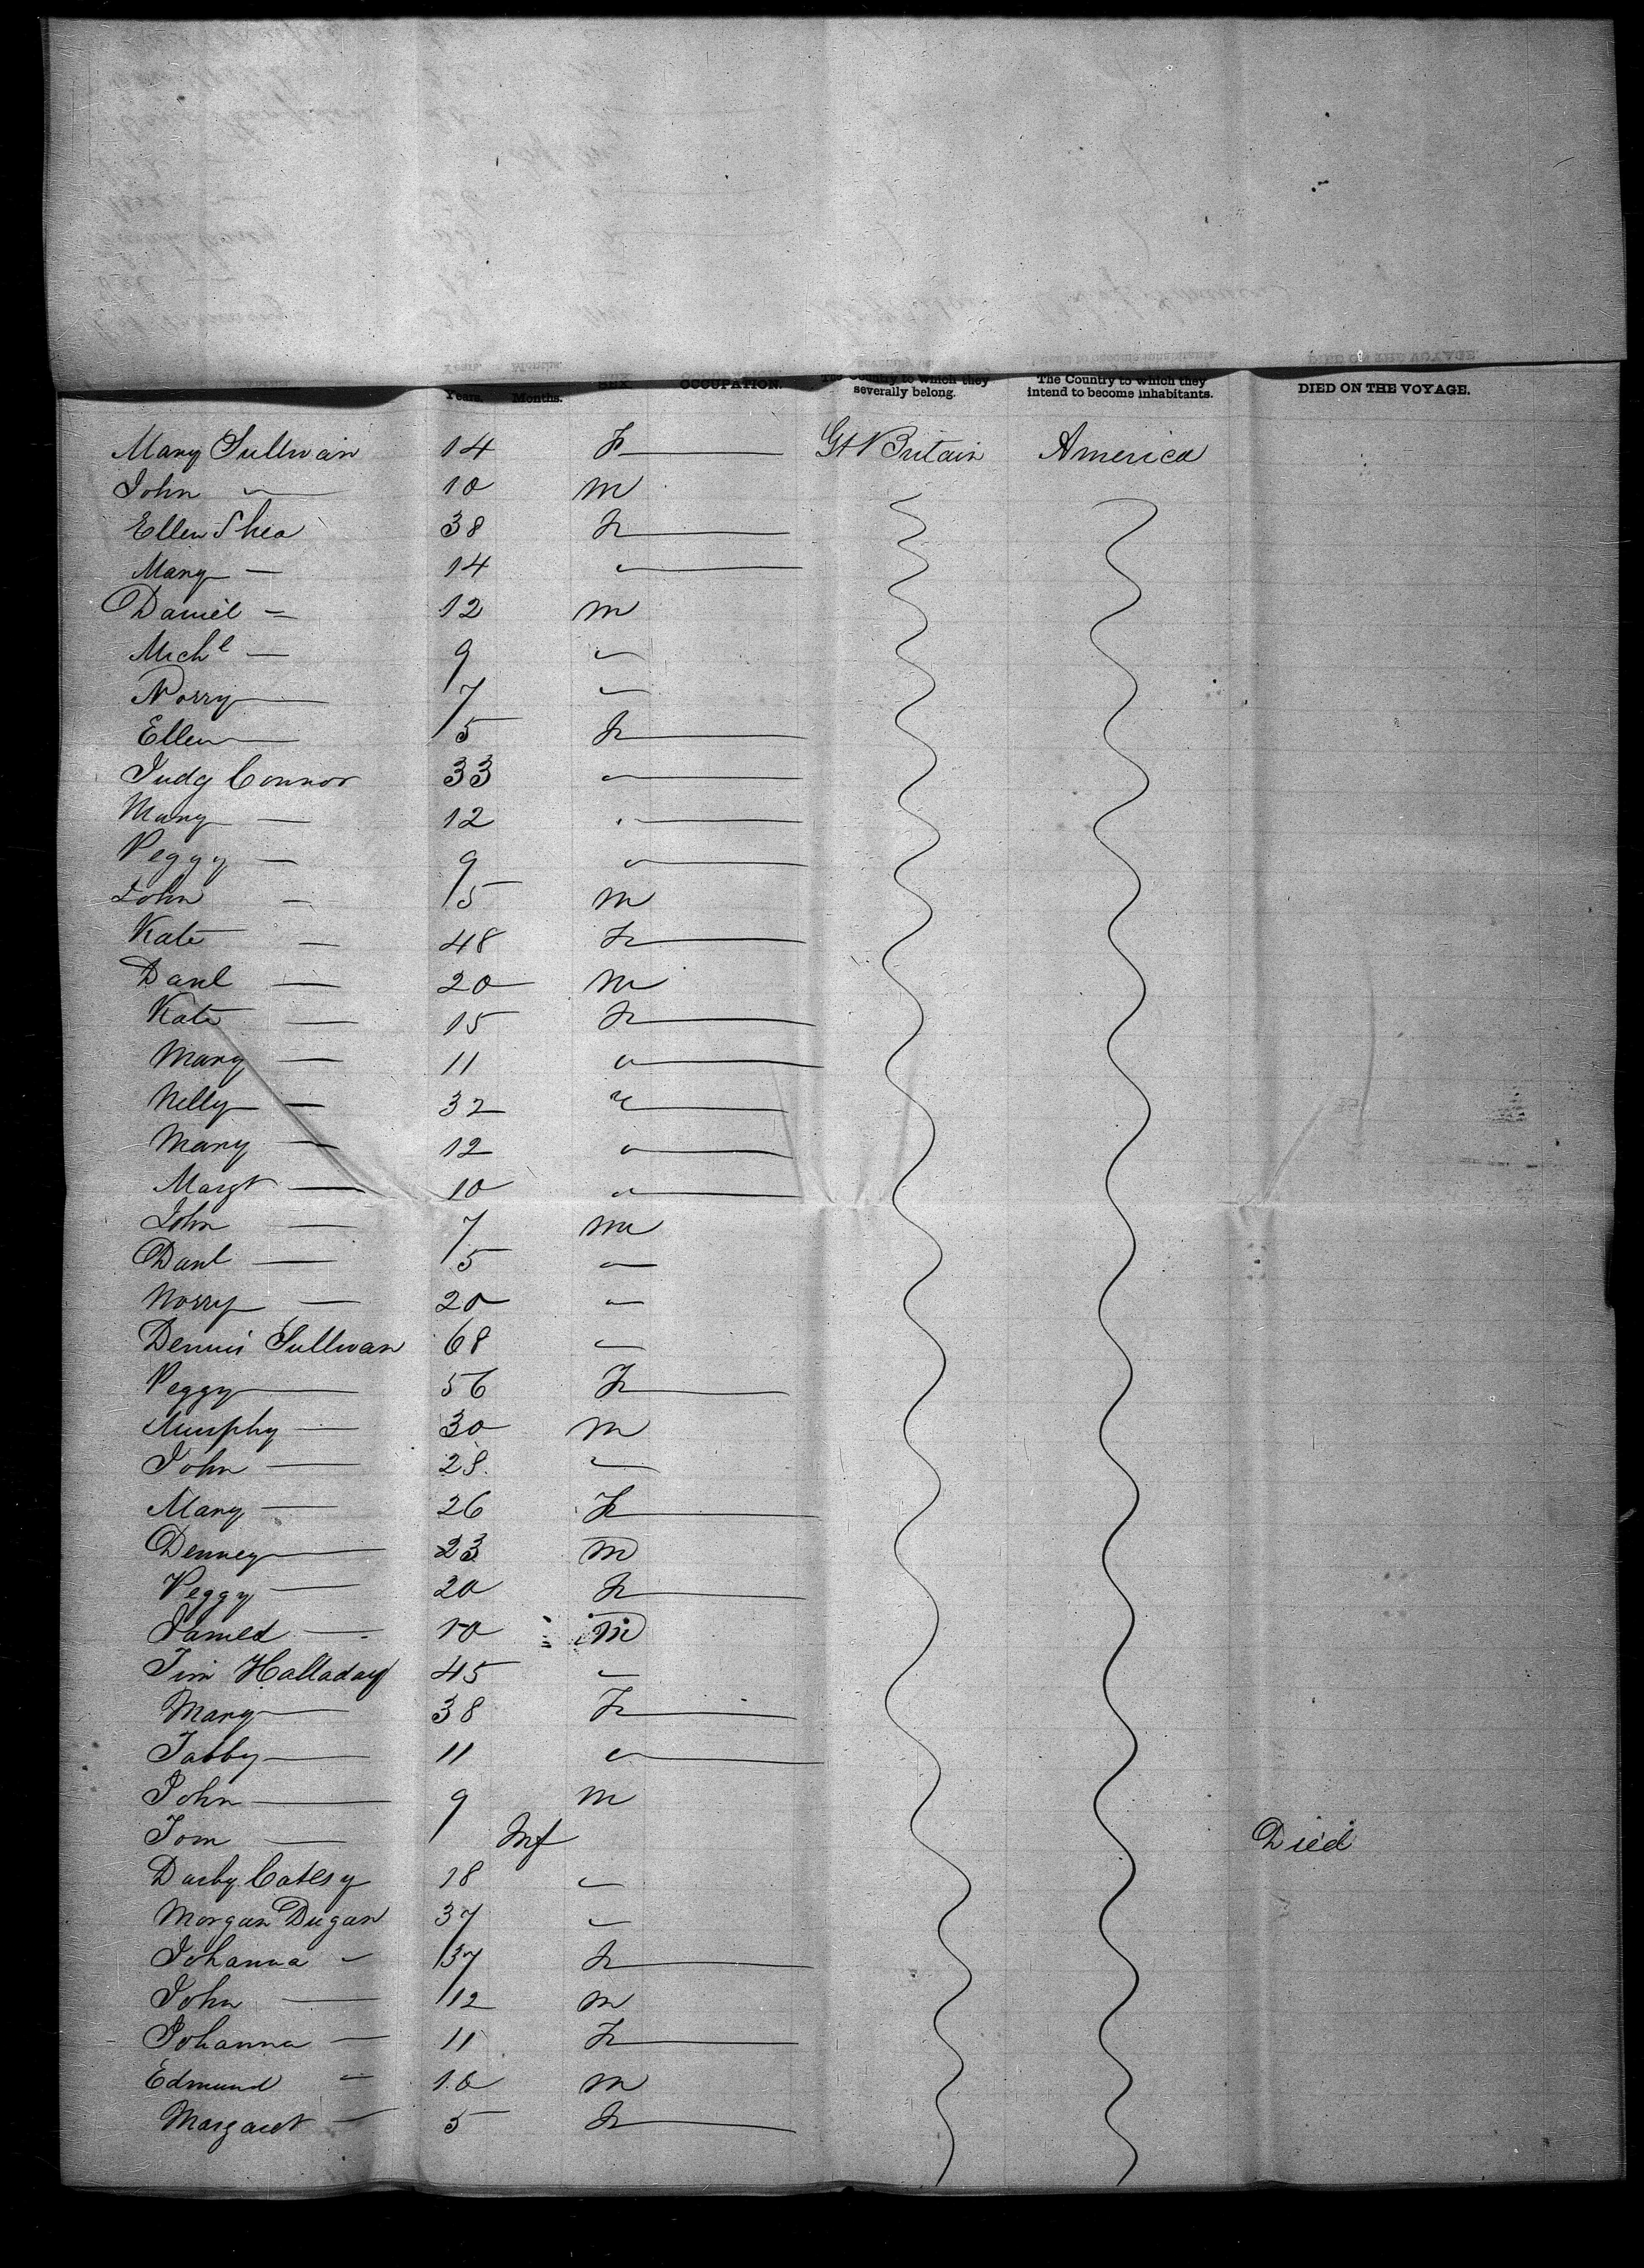 Years. Months. SEX OCCUPATION. The Country to which they severally belong. The Country to which they intend to become inhabitants. DIED ON THE VOYAGE.
Mary Sullivan 14 F — Gt Britain America
John — 10 m
Ellen Shea 38 F —
Mary — 14 " —
Daniel — 12 m
Michl — 9 "
Norry — 7 "
Ellen — 5 F —
Judy Connor 33 " —
Mary — 12 " —
Peggy — 9 " —
John — 5 m
Kate — 48 F —
Danl — 20 m
Kate — 15 F —
Mary — 11 " —
Nelly — 32 " —
Mary — 12 " —
Margt — 10 " —
John — 7 m
Danl — 5 "
Norry — 20 "
Dennis Sullivan 68 "
Peggy — 56 F —
Murphy — 30 m
John — 28 "
Mary — 26 F —
Denney — 23 m
Peggy — 20 F —
James — 10 m
Tim Halladay 45 "
Mary — 38 F —
Tabby — 11 " —
John — 9 m
Tom — Inf Died
Darby 18 "
Morgan Dugan 37 "
Johanna " 37 F —
John — 12 m
Johanna — 11 F —
Edmund " 10 m
Margaret — 5 F —